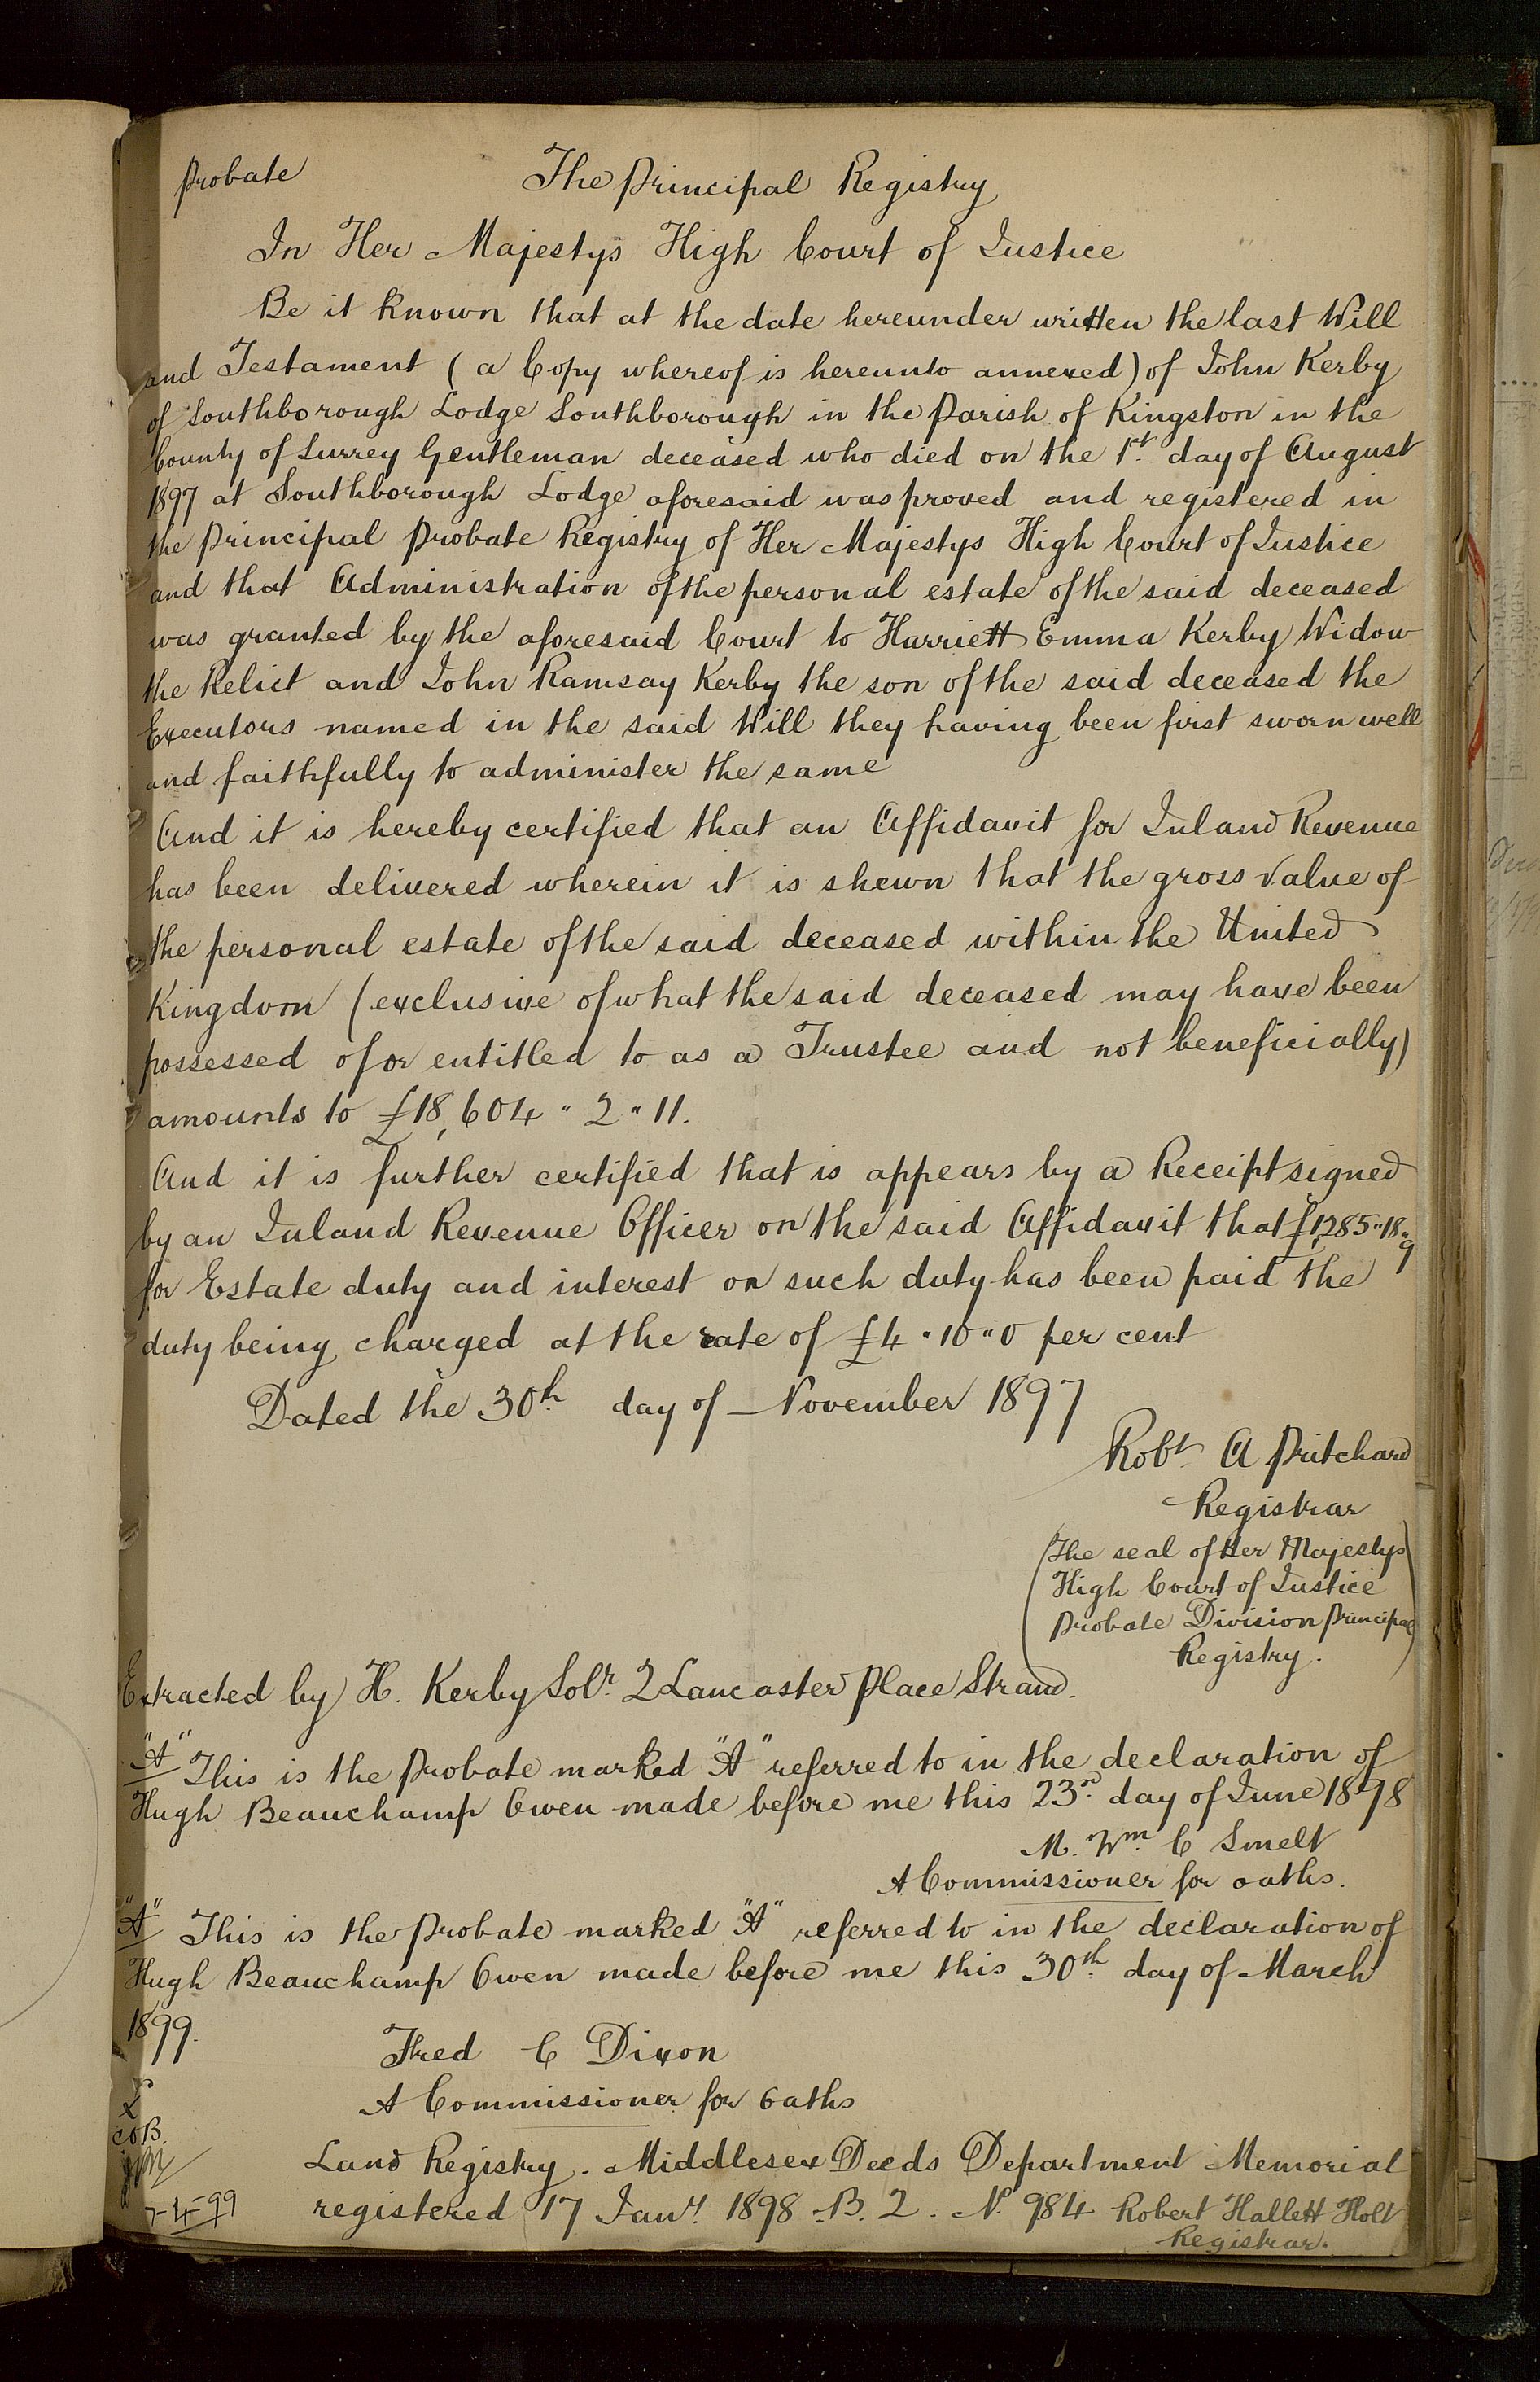 Probate The Principal Registry
In Her Majestys High Court of Justice
Be it known that at the date hereunder written the last Will
and Testament (a Copy whereof is hereunto annexed) of John Kerby
of Southborough Lodge Southborough in the Parish of Kingston in the
County of Surrey Gentleman deceased who died on the 1st day of August
1897 at Southborough Lodge aforesaid was proved and registered in
the Principal Probate Registry of Her Majestys High Court of Justice
and that Administration of the personal estate of the said deceased
was granted by the aforesaid Court to Harriett Emma Kerby Widow
the Relict and John Ramsay Kerby the son of the said deceased the
Executors named in the said Will they having been first sworn well
and faithfully to administer the same
And it is hereby certified that an Affidavit for Inland Revenue
has been delivered wherein it is shewn that the gross value of
the personal estate of the said deceased within the United
Kingdom (exclusive of what the said deceased may have been
possessed of or entitled to as a Trustee and not beneficially)
amounts to £18,604 " 2 " 11.
And it is further certified that is appears by a Receipt signed
by an Inland Revenue Officer on the said Affidavit that £1,285 " 18 " 9
for Estate duty and interest on such duty has been paid the
duty being charged at the rate of £4 " 10 " 0 per cent
Dated the 30th day of November 1897
Robt A Pritchard
Registrar
(The seal of Her Majestys
High Court of Justice
Probate Division Principal
Registry.)
Extracted by H. Kerby Solr 2 Lancaster Place Strand.
"A" This is the Probate marked "A" referred to in the declaration of
Hugh Beauchamp Owen made before me this 23rd day of June 1898
M. Wm C Smelt
A Commissioner for oaths.
"A" This is the Probate marked "A" referred to in the declaration of
Hugh Beauchamp Owen made before me this 30th day of March
1899.
Fred C Dixon
A Commissioner for Oaths
Land Registry. Middlesex Deeds Department Memorial
registered 17 Jany 1898 B. 2. No 984 Robert Hallett Holt
Registrar.
7-4-99